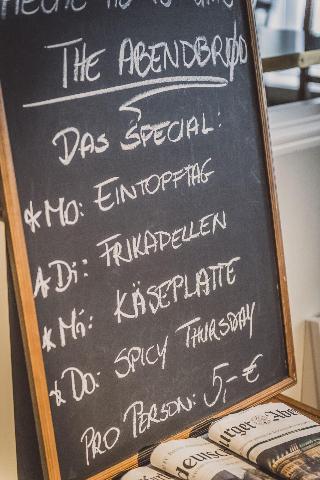 The Abendbrood
Das Special:
* Mo: Eintopftag
* Di: Frikadellen
* Mi: Käseplatte
* Do: Spicy Thursday
Pro Person: 5,- €